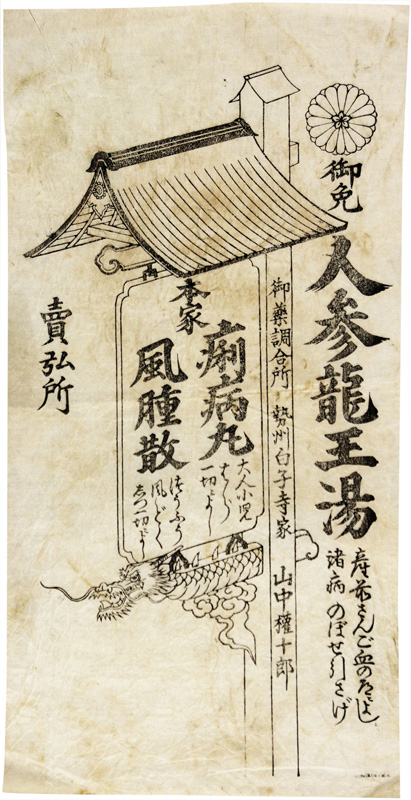 御免
人参龍王湯
産前さんご血のみちによし
諸病のぼせ引さげ
御藥調合所 勢州白子寺家 山中權十郎
本家
痢病丸
大人小児
一切によし
風腫散
風どく
一切によし
賣弘所